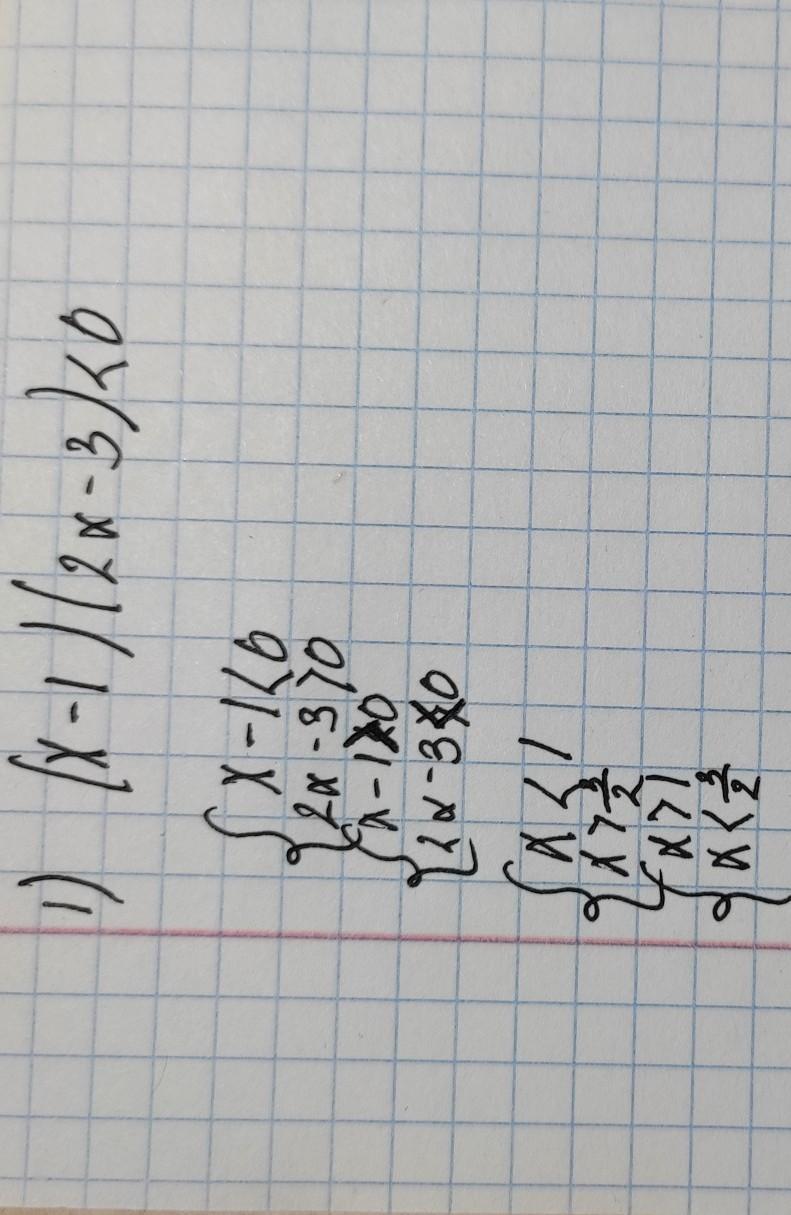 1) (x-1)(2x-3)<0
{ x-1<0
2x-3>0
{ x-1>0
2x-3<0
{ x<1
x>3/2
{ x>1
x<3/2